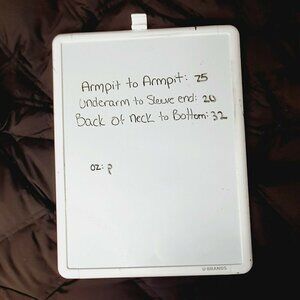 Armpit to Armpit: 25
Underarm to Sleeve end: 20
Back of neck to Bottom: 32
oz: P
U BRANDS